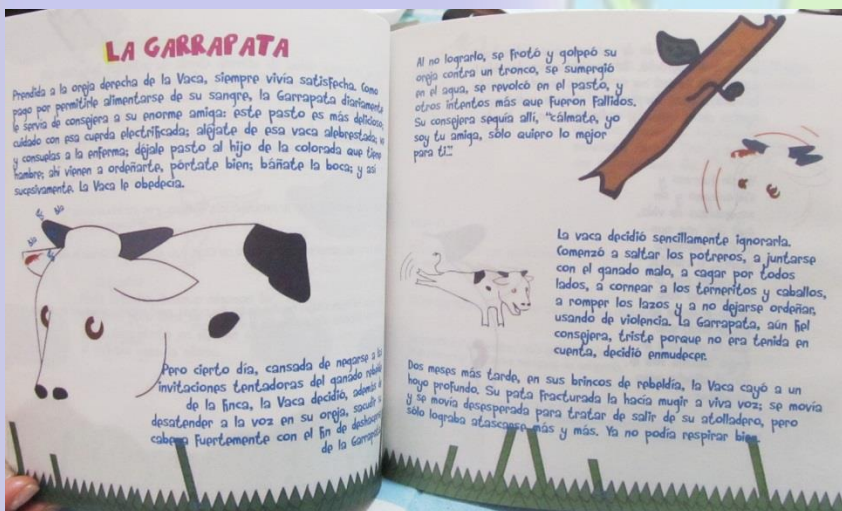 LA GARRAPATA
Prendida a la oreja derecha de la Vaca, siempre vivía satisfecha. Como
pago por permitirle alimentarse de su sangre, la Garrapata diariamente
le servía de consejera a su enorme amiga: este pasto es más delicioso;
cuidado con esa cuerda electrificada; aléjate de esa vaca alebrestada; ve
y consuelas a la enferma; déjale pasto al hijo de la colorada que tiene
hambre; ahí vienen a ordeñarte, pórtate bien; báñate la boca; y así
sucesivamente. La Vaca le obedecía.
Bla
Bla
Pero cierto día, cansada de negarse a las
invitaciones tentadoras del ganado rebelde
de la finca, la Vaca decidió, además de
desatender a la voz en su oreja, sacudir su
cabeza fuertemente con el fin de deshacerse
de la Garrapata.
Al no lograrlo, se frotó y golpeó su
oreja contra un tronco, se sumergió
en el agua, se revolcó en el pasto, y
otros intentos más que fueron fallidos.
Su consejera seguía allí, “cálmate, yo
soy tu amiga, sólo quiero lo mejor
para ti”.
La vaca decidió sencillamente ignorarla.
Comenzó a saltar los potreros, a juntarse
con el ganado malo, a cagar por todos
lados, a cornear a los terneritos y caballos,
a romper los lazos y a no dejarse ordeñar,
usando de violencia. La Garrapata, aún fiel
consejera, triste porque no era tenida en
cuenta, decidió enmudecer.
Dos meses más tarde, en sus brincos de rebeldía, la Vaca cayó a un
hoyo profundo. Su pata fracturada la hacía mugir a viva voz; se movía
y se movía desesperada para tratar de salir de su atolladero, pero
sólo lograba atascarse más y más. Ya no podía respirar bien.